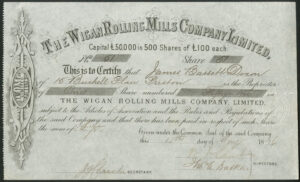 THE WIGAN ROLLING MILLS COMPANY, LIMITED.
Capital £50,000 in 500 Shares of £100 each
No. 61 Share 61
This is to Certify that James Bassett Dixon
of 15 Bushell Place Preston is the Proprietor
of Share numbered
in THE WIGAN ROLLING MILLS COMPANY, LIMITED,
subject to the Articles of Association and the Rules and Regulations of
the said Company and that there has been paid in respect of such Share
the sum of
Given under the Common Seal of the said Company
this day of
SECRETARY.
DIRECTORS.